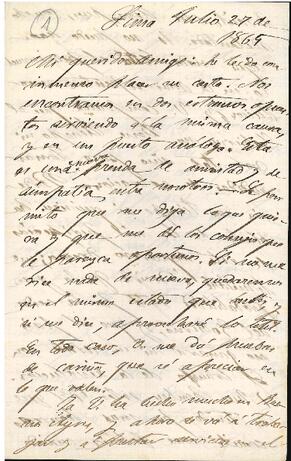 1
Lima Julio 27 de
1865
Mi querido amigo: he leido con
inmenso placer su carta. Nos
encontramos en dos estremos opues
tos sirviendo á la misma causa,
y en un punto analogo. Esta
es una nueva prenda de amistad y de
simpatia entre nosotros. Le per
mito que me diga lo que quie
ra y que me dé los consejos que
le parezca oportunos. Si no me
dice nada de nuevo, quedaremos
en el mismo estado que antes, y
si me dice, aprovecharé lo util.
En todo caso, me da pruebas
de cariño, que sé apreciar en
lo que valen.
Ya U. ha hecho mucho en Bue
nos Ayres, y ahora se va á
y á prestar servicios en el